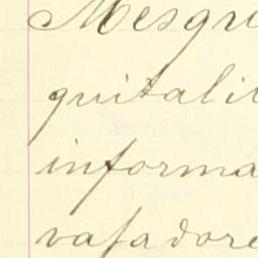 Mesqu
quitalil
informa
vafadore